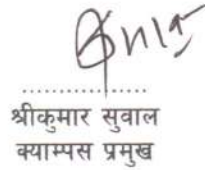 ..................
श्रीकुमार सुवाल
क्याम्पस प्रमुख